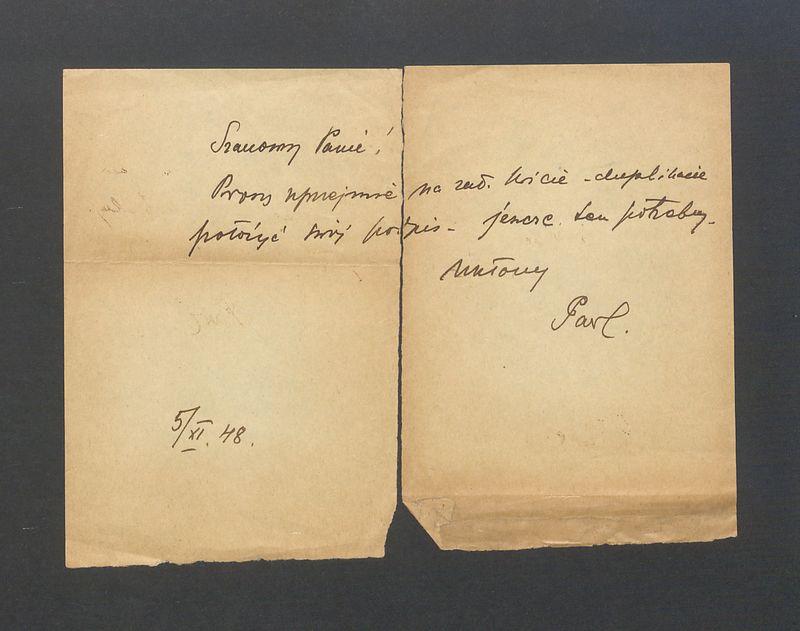 Szanowny Panie!
Proszę uprzejmie na zał. kicie - duplikacie
położyć swój podpis - jeszcze ten potrzebny.
Pavl.
5/XI. 48.